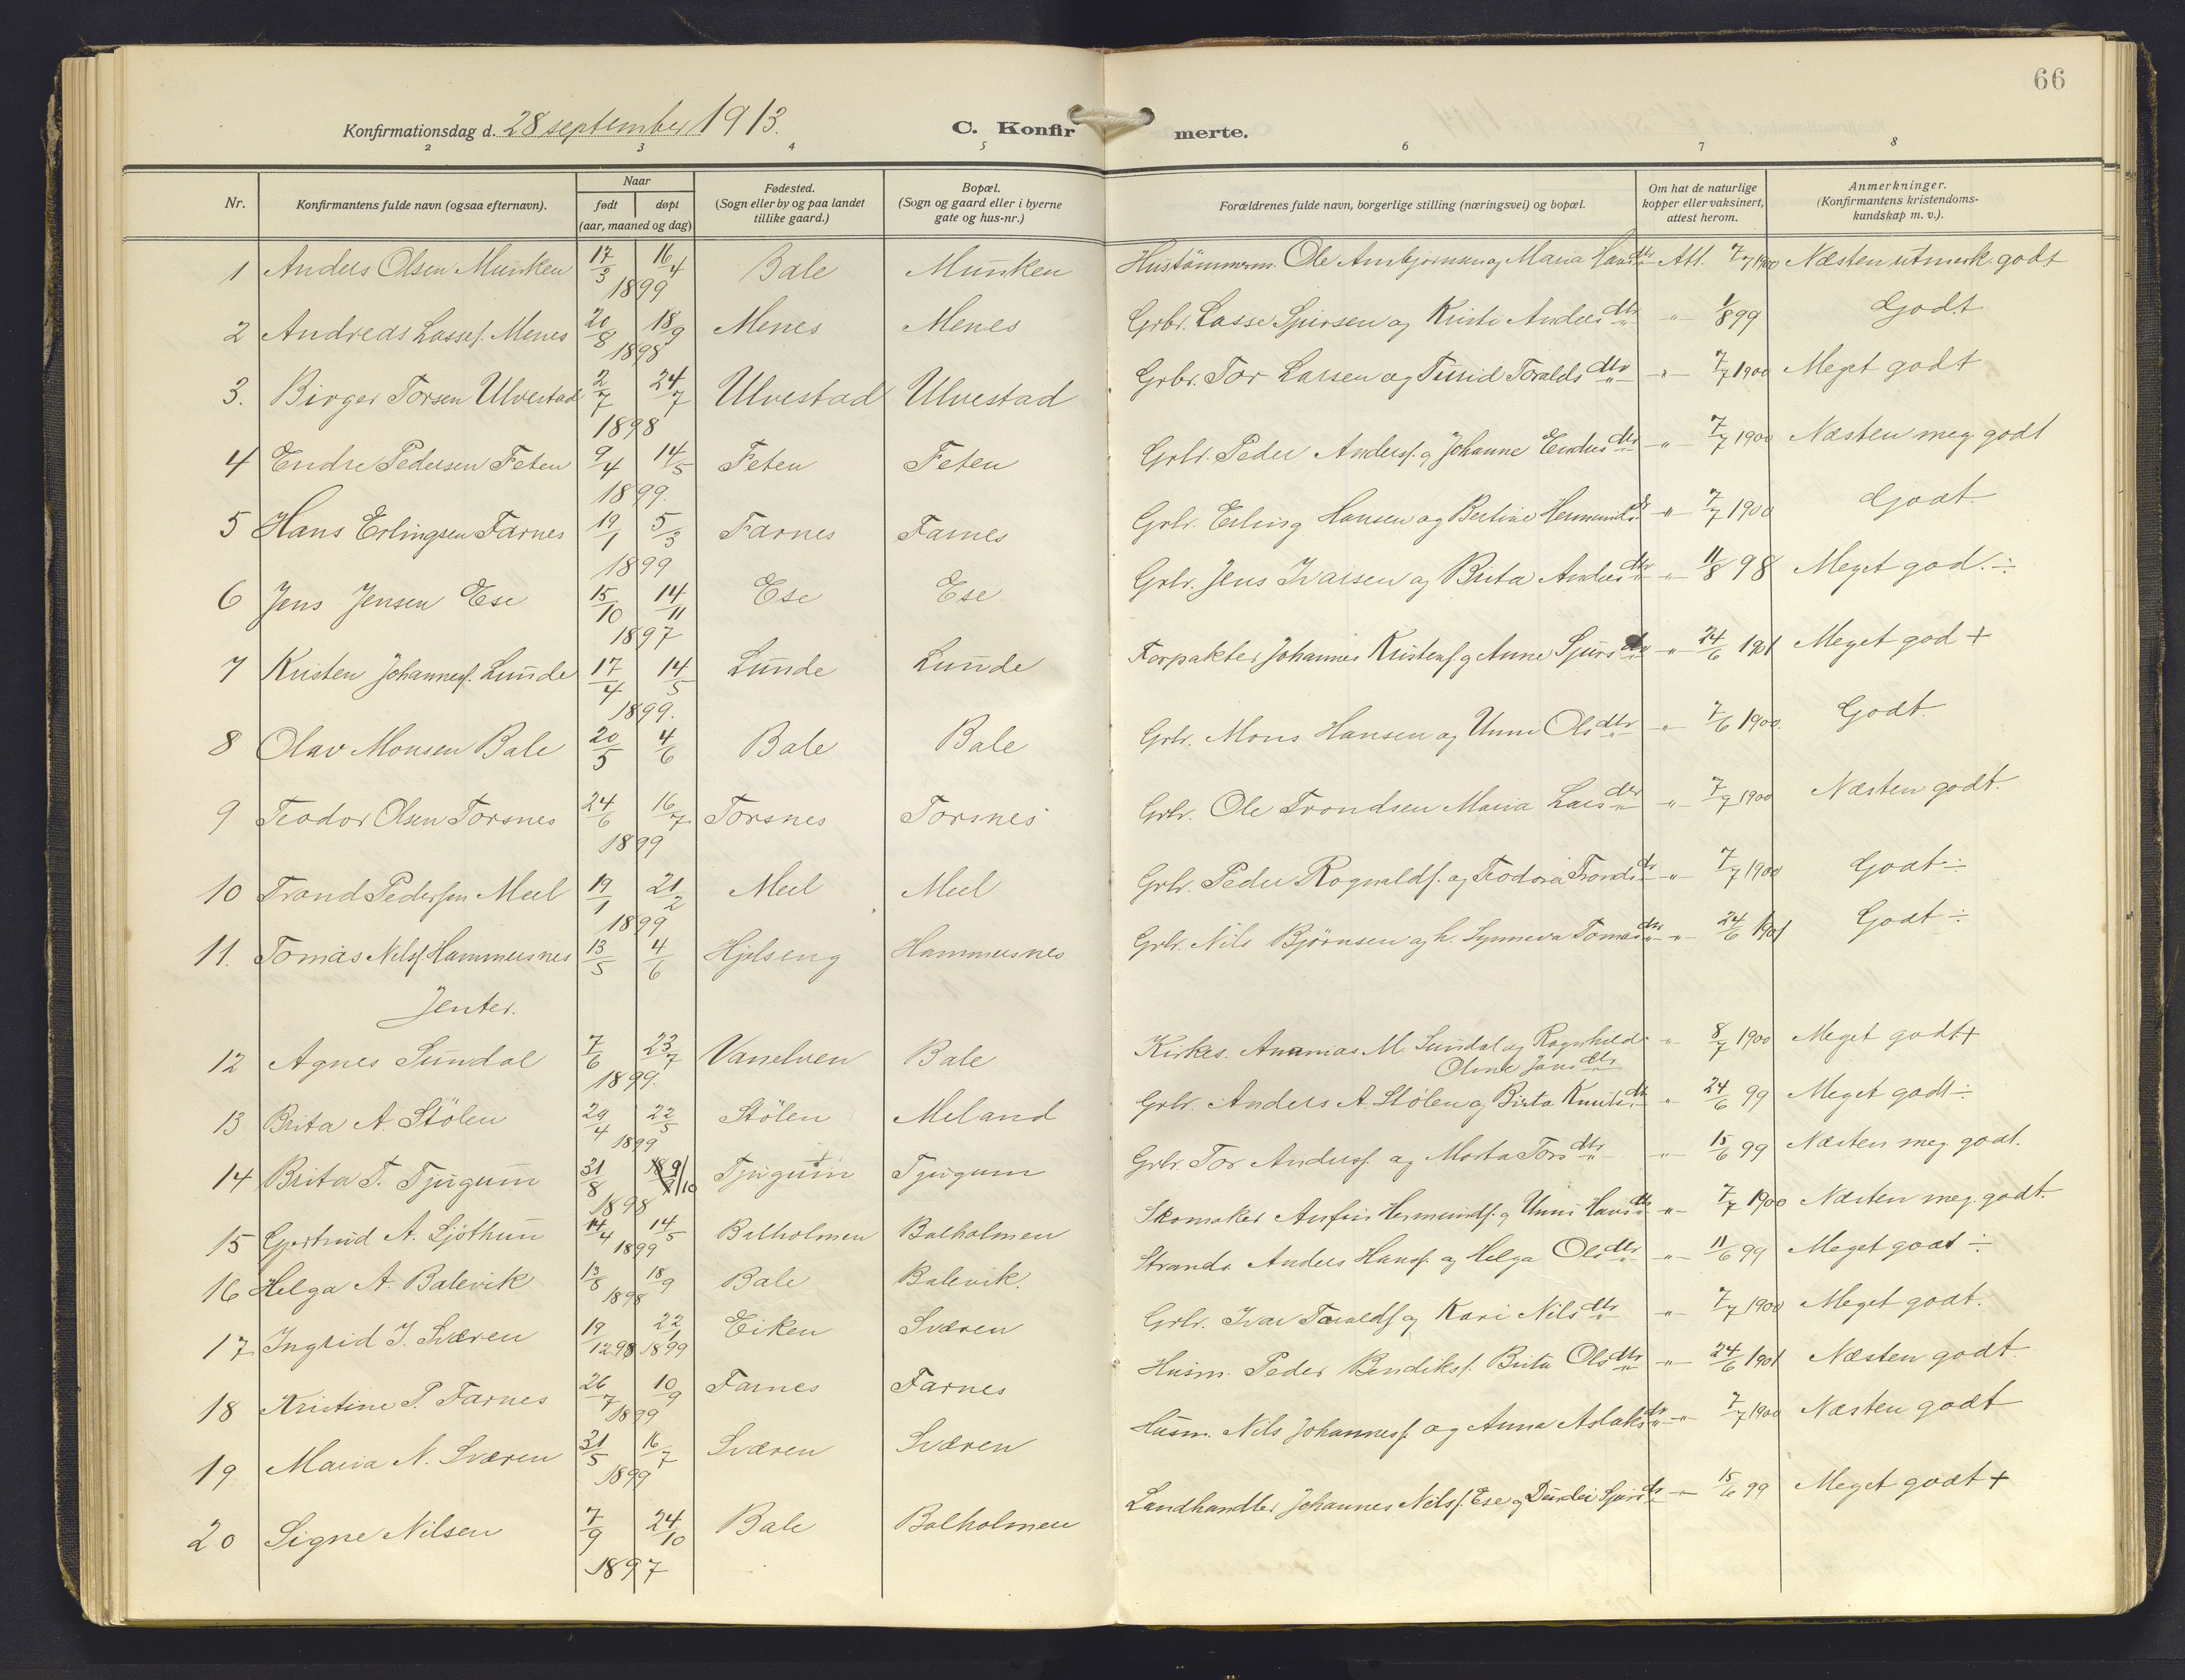 66
Konfirmationsdag d. 28 september 1913.
C. Konfirmerte.
2 3 4 5 6 7 8
Nr.
Konfirmantens fulde navn (ogsaa efternavn).
Naar
født
døpt
(aar, maaned og dag)
Fødested.
(Sogn eller by og paa landet
tillike gaard.)
Bopæl.
(Sogn og gaard eller i byerne
gate og hus-nr.)
Forældrenes fulde navn, borgerlige stilling (næringsvei) og bopæl.
Om hat de naturlige
kopper eller vaksinert,
attest herom.
Anmerkninger.
(Konfirmantens kristendoms-
kundskap m. v.).
1 Anders Olsen Munken 17/3 16/4 1899 Bale Munken Hustömmerm. Ole Ambjörnsen og Maria Hansdtr Att. 7/7 1900 Næsten utmerk. godt
2 Andreas Lassesf. Menes 20/8 18/9 1898 Menes Menes Grbr. Lasse Sjursen og Kristi Andersdtr " 1/8 99 Godt
3. Birger Torsen Ulvestad 2/7 24/7 1898 Ulvestad Ulvestad Grbr. Tor Larsen og Turid Toraldsdtr " 7/7 1900 Meget godt
4 Endre Pedersen Feten 9/4 14/5 1899. Feten Feten Grbr. Peder Andersf. og Johanne Endresdtr " 7/7 1900 Næsten meg. godt
5 Hans Erlingsen Farnes 19/1 5/3 1899 Farnes Farnes Grbr. Erling Hansen og Bertine Hermundsdr " 7/7 1900 Godt.
6 Jens Jensen Ese 15/10 14/11 1897 Ese Ese Grbr. Jens Ivarsen og Brita Andersdtr " 11/8 98 Meget god. ÷
7 Kristen Johannesf. Lunde 17/4 14/5 1899. Lunde Lunde Forpakter Johannes Kristensf. og Anne Sjursdtr " 24/6 1901 Meget god +
8 Olav Monsen Bale 20/5 4/6 Bale Bale Grbr. Mons Hansen og Unni Olsdtr " 7/6 1900. Godt.
9 Teodor Olsen Torsnes 24/6 16/7 1899 Torsnes Torsnes Grbr. Ole Trondsen Maria Larsdtr " 7/7 1900 Næsten godt.
10 Trond Pedersen Meel 19/1 21/2 1899 Meel Meel Grbr. Peder Rognaldsf. og Teodora Trondsdr " 7/7 1900 Godt ÷
11. Tomas Nilsf. Hammersnes 13/5 4/6 Hjelseng Hammersnes Grbr. Nils Björnsen og h. Synneva Tomasdtr " 24/6 1901 Godt ÷
Jenter.
12 Agnes Sundal 7/6 23/7 1899. Vanelven Bale Kirkes. Ananias M. Sundal og Ragnhild " 8/7 1900 Meget godt +
Oline Jansdtr
13 Brita A. Stölen 29/4 22/5 1899 Stölen Meland Grbr. Anders A. Stölen og Brita Knutsdtr " 24/6 99 Meget godt ÷
14 Brita T. Tjugum 31/8 9/10 1898 Tjugum Tjugum Grbr. Tor Andersf. og Marta Torsdtr " 15/6 99 Næsten meg. godt.
15 Gjertrud A. Sjöthun 14/4 14/5 1899 Balholmen Balholmen Skomaker Anfin Hermundsf. og Unni Hansdtr " 7/7 1900 Næsten meg. godt.
16 Helga A. Balevik 13/8 18/9 1898 Bale Balevik. Strands. Anders Hansf. og Helga Olsdtr " 11/6 99 Meget godt ÷
17 Ingrid I. Sværen 19/12 98 22/1 1899 Eiken Sværen Grbr. Ivar Taraldsf og Kari Nilsdtr " 7/7 1900 Meget godt.
18 Kristine P. Farnes 26/7 10/9 1899 Farnes Farnes Husm. Peder Bendiksf. Brita Olsdtr " 24/6 1901 Næsten godt.
19 Maria N. Sværen 31/5 16/7 1899 Sværen Sværen Husm. Nils Johannesf. og Anna Aslaksdtr " 7/7 1900 Næsten godt
20 Signe Nilsen 7/9 24/10 1897 Bale Balholmen Landhandler Johannes Nilsf. Ese og Durdei Sjursdr " 15/6 99 Meget godt +